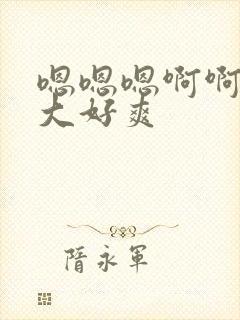 嗯嗯嗯啊啊
大好爽
隋永军